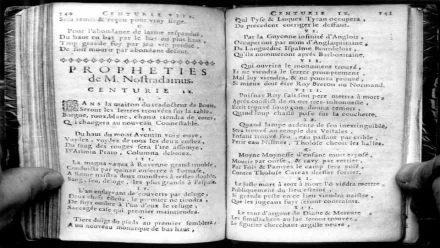 740 CENTURIE VIII.
Sera remis & regne pour
Pour l'abondance de larme respandue
Du haut en bas par le bas au plus haut
Trop grande foy par jeu vie perdue,
De soif mourir par abondant deffaut.
PROPHETIES
de M. Nostradamus.
CENTURIE IX.
DANS la maison du traducteur de Bourc,
Seront les lettres trouvées sur la table,
Borgne, roux, blanc, chanu tiendra de cours,
Qui changera au nouveau Connestable.
II.
Du haut du mont Aventin voix ouye,
Vuidez, vuidez de tous les deux costez,
Du sang des rouges sera l'ire assomye,
D'Arimin Prate, Columna debotez.
III.
La magna vaqua à Ravenne grand trouble,
Conduicts par quinze enserrez à Fornase,
A Rome naistra deux monstres à teste double,
Sang, feu, deluge, les plus grands à l'espase.
IV.
L'an ensuyvant de couverts par deluge,
Deux chefs esleus, le premier ne tiendra
De fuyr ombre à l'un d'eux le refuge,
Saccagée case qui premier maintiendra.
V.
Tiers doigt du pied au premier semblera,
A un nouveau monarque de bas haut,
CENTURIE IX. 741
Qui Pyse & Luques Tyran occupera,
Du precedent corriger le deffaut.
VI.
Par la Guyenne infinité d'Anglois,
Occuperont par nom d'Anglaquitaine,
Du Languedoc Ispalme Bourdelois,
Qu'ils nommeront apres Barboxitaine.
VII.
Qui ouvrira le monument trouvé,
Et ne viendra le serrer promptement,
Mal luy viendra, & ne pourra prouvé,
Si mieux doit estre Roy Breton ou Normand.
VIII.
Puisnay Roy fait son pere mettra à mort,
Apres conflict de mort tres-inhonneste:
Escrit trouvé, soupçon donra remort,
Quand loup chassé pose sur la couchette.
IX.
Quand lampe ardente de feu inextinguible,
Sera trouvé au temple des Vestales,
Enfant trouvé feu, eau passant par crible:
Perir eau Nismes, Tholose cheoir les halles.
X.
Moyne Moynesse d'enfant mort exposé,
Mourir par ourse, & ravy par verrier,
Par Foix & Pamyes le camp sera posé,
Contre Tholose Carcas dresser forrier.
XI.
Le juste mort à tort à mort l'on viendra mettre
Publiquement du lieu esteint:
Si grande peste en ce lieu viendra naistre,
Que les jugeans fuyr seront contraints.
XII.
Le tant d'argent de Diane & Mercure
Les simulachres au lac seront trouvez,
Le figulier cherchant argille neuve,